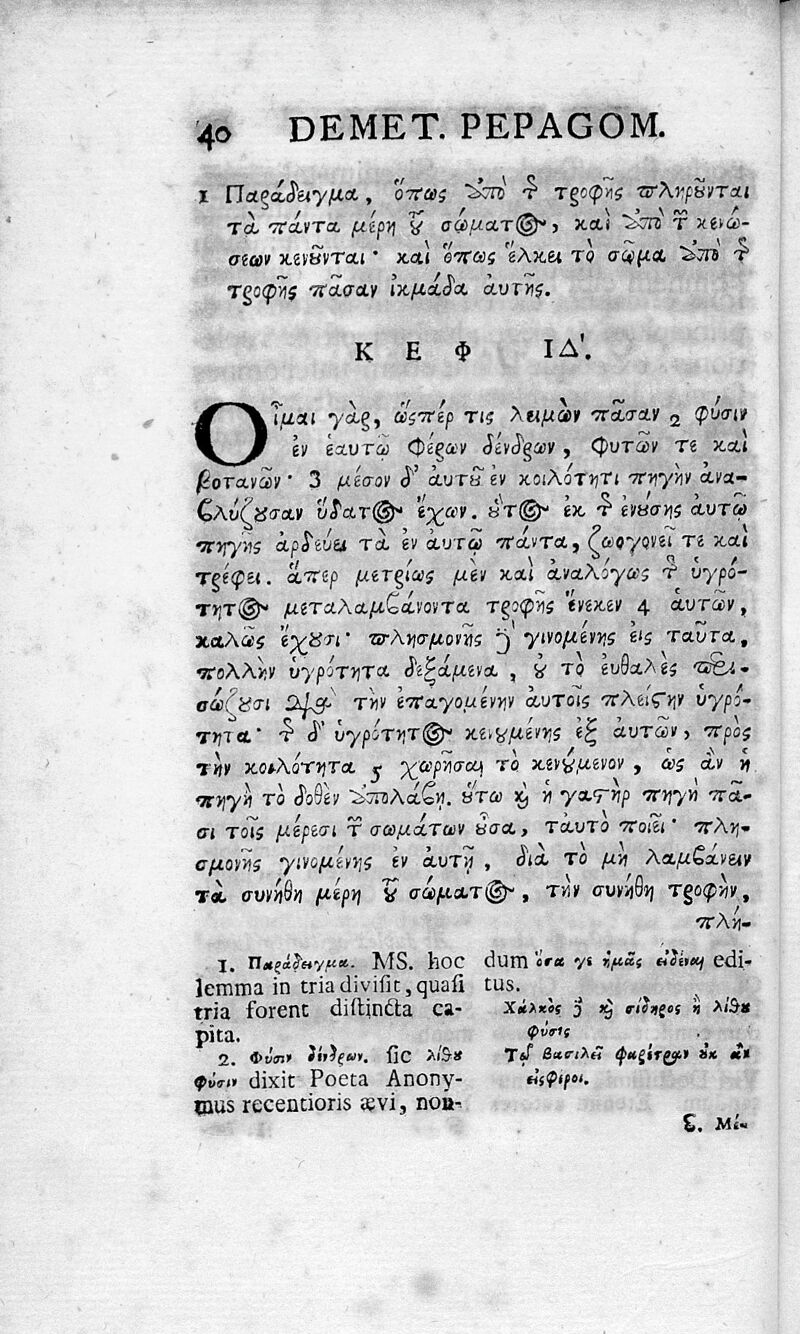 40 DEMET. PEPAGOM.
1 Παράδειγμα, ὅπως ἀπὸ τῆς τροφῆς πληροῦνται
τὰ πάντα μέρη τοῦ σώματος, καὶ ἀπὸ τῶν κενώ-
σεων κενοῦνται· καὶ ὅπως ἕλκει τὸ σῶμα ἀπὸ τῆς
τροφῆς πᾶσαν ἰκμάδα αὐτῆς.
ΚΕΦ ΙΔ'.
Οἶμαι γὰρ, ὥσπέρ τις λειμὼν πᾶσαν 2 φύσιν
ἐν ἑαυτῷ φέρων δένδρων, φυτῶν τε καὶ
βοτανῶν· 3 μέσον δ' αὐτοῦ ἐν κοιλότητι πηγὴν ἀνα-
βλύζουσαν ὕδατος ἔχων. οὗτος ἐκ τῆς ἐνούσης αὐτῷ
πηγῆς ἀρδεύει τὰ ἐν αὐτῷ πάντα, ζωογονεῖ τε καὶ
τρέφει. ἅπερ μετρίως μὲν καὶ ἀναλόγως τῆς ὑγρό-
τητος μεταλαμβάνοντα τροφῆς ἕνεκεν 4 αὑτῶν,
καλῶς ἔχουσι· πλησμονῆς δὲ γινομένης εἰς ταῦτα,
πολλὴν ὑγρότητα δεξάμενα, οὐ τὸ εὐθαλὲς περι-
σώζουσι διὰ τὴν ἐπαγομένην αὐτοῖς πλείστην ὑγρό-
τητα· τῆς δ' ὑγρότητος κενουμένης ἐξ αὐτῶν, πρὸς
τὴν κοιλότητα 5 χωρῆσαι τὸ κενούμενον, ὡς ἂν ἡ
πηγὴ τὸ δοθὲν ἀπολάβῃ. οὕτω καὶ ἡ γαστὴρ πηγὴ πᾶ-
σι τοῖς μέρεσι τῶν σωμάτων οὖσα, ταὐτὸ ποιεῖ· πλη-
σμονῆς γινομένης ἐν αὐτῇ, διὰ τὸ μὴ λαμβάνειν
τὰ συνήθη μέρη τοῦ σώματος, τὴν συνήθη τροφὴν,
πλή-
1. Παράδειγμα. MS. hoc
lemma in tria divisit, quasi
tria forent distincta ca-
pita.
2. Φύσιν δένδρων. sic λίθου
φύσιν dixit Poeta Anony-
mus recentioris ævi, non-
dum ὅσα γε ἡμᾶς εἰδέναι edi-
tus.
Χάλκὸς δὲ καὶ σίδηρος ἢ λίθου
φύσις
Τῷ βασιλεῖ φαρέτραν οὐκ ἂν
εἰσφέροι.
3. Μέ-